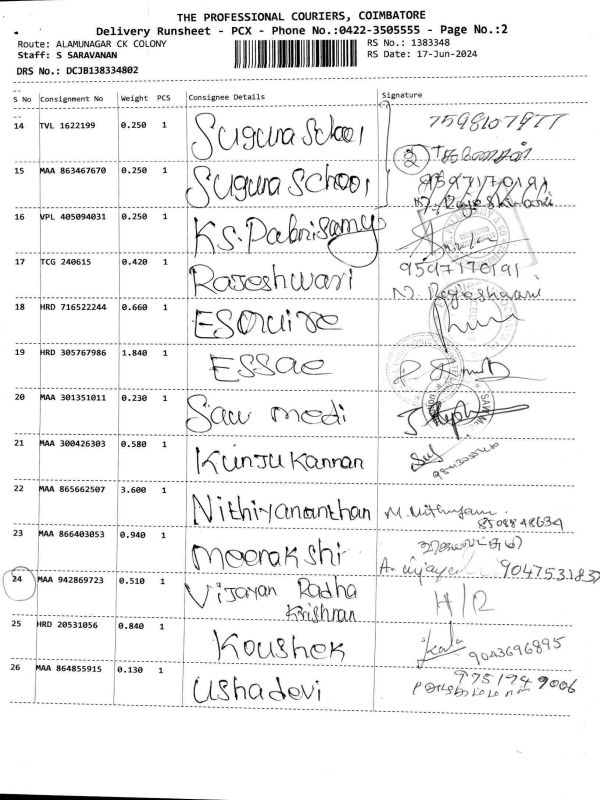 THE PROFESSIONAL COURIERS, COIMBATORE
Delivery Runsheet - PCX - Phone No.:0422-3505555 - Page No.:2
Route: ALAMUNAGAR CK COLONY RS No.: 1383348
Staff: S SARAVANAN RS Date: 17-Jun-2024
DRS No.: DCJB138334802
S No Consignment No Weight PCS Consignee Details Signature
14 TVL 1622199 0.250 1 Suguna School 7598107977
2
15 MAA 863467670 0.250 1 Suguna School 9597170191
16 VPL 405094031 0.250 1 K.S. Palanisamy
17 TCG 240615 0.420 1 Rajeshwari 9597170191
N. Rajeshwari
18 HRD 716522244 0.660 1 ESQUIRE
19 HRD 305767986 1.840 1 ESSAE
20 MAA 301351011 0.230 1 Saw medi
21 MAA 300426303 0.580 1 Kunju Kannan
22 MAA 865662507 3.600 1 Nithiyananthan
8508848634
23 MAA 866403053 0.940 1 meenakshi
24 MAA 942869723 0.510 1 Vijayan Radha 9047531837
Krishnan H/R
25 HRD 20531056 0.840 1 Koushek Kala 9043696895
26 MAA 864855915 0.130 1 Ushadevi 9751949006